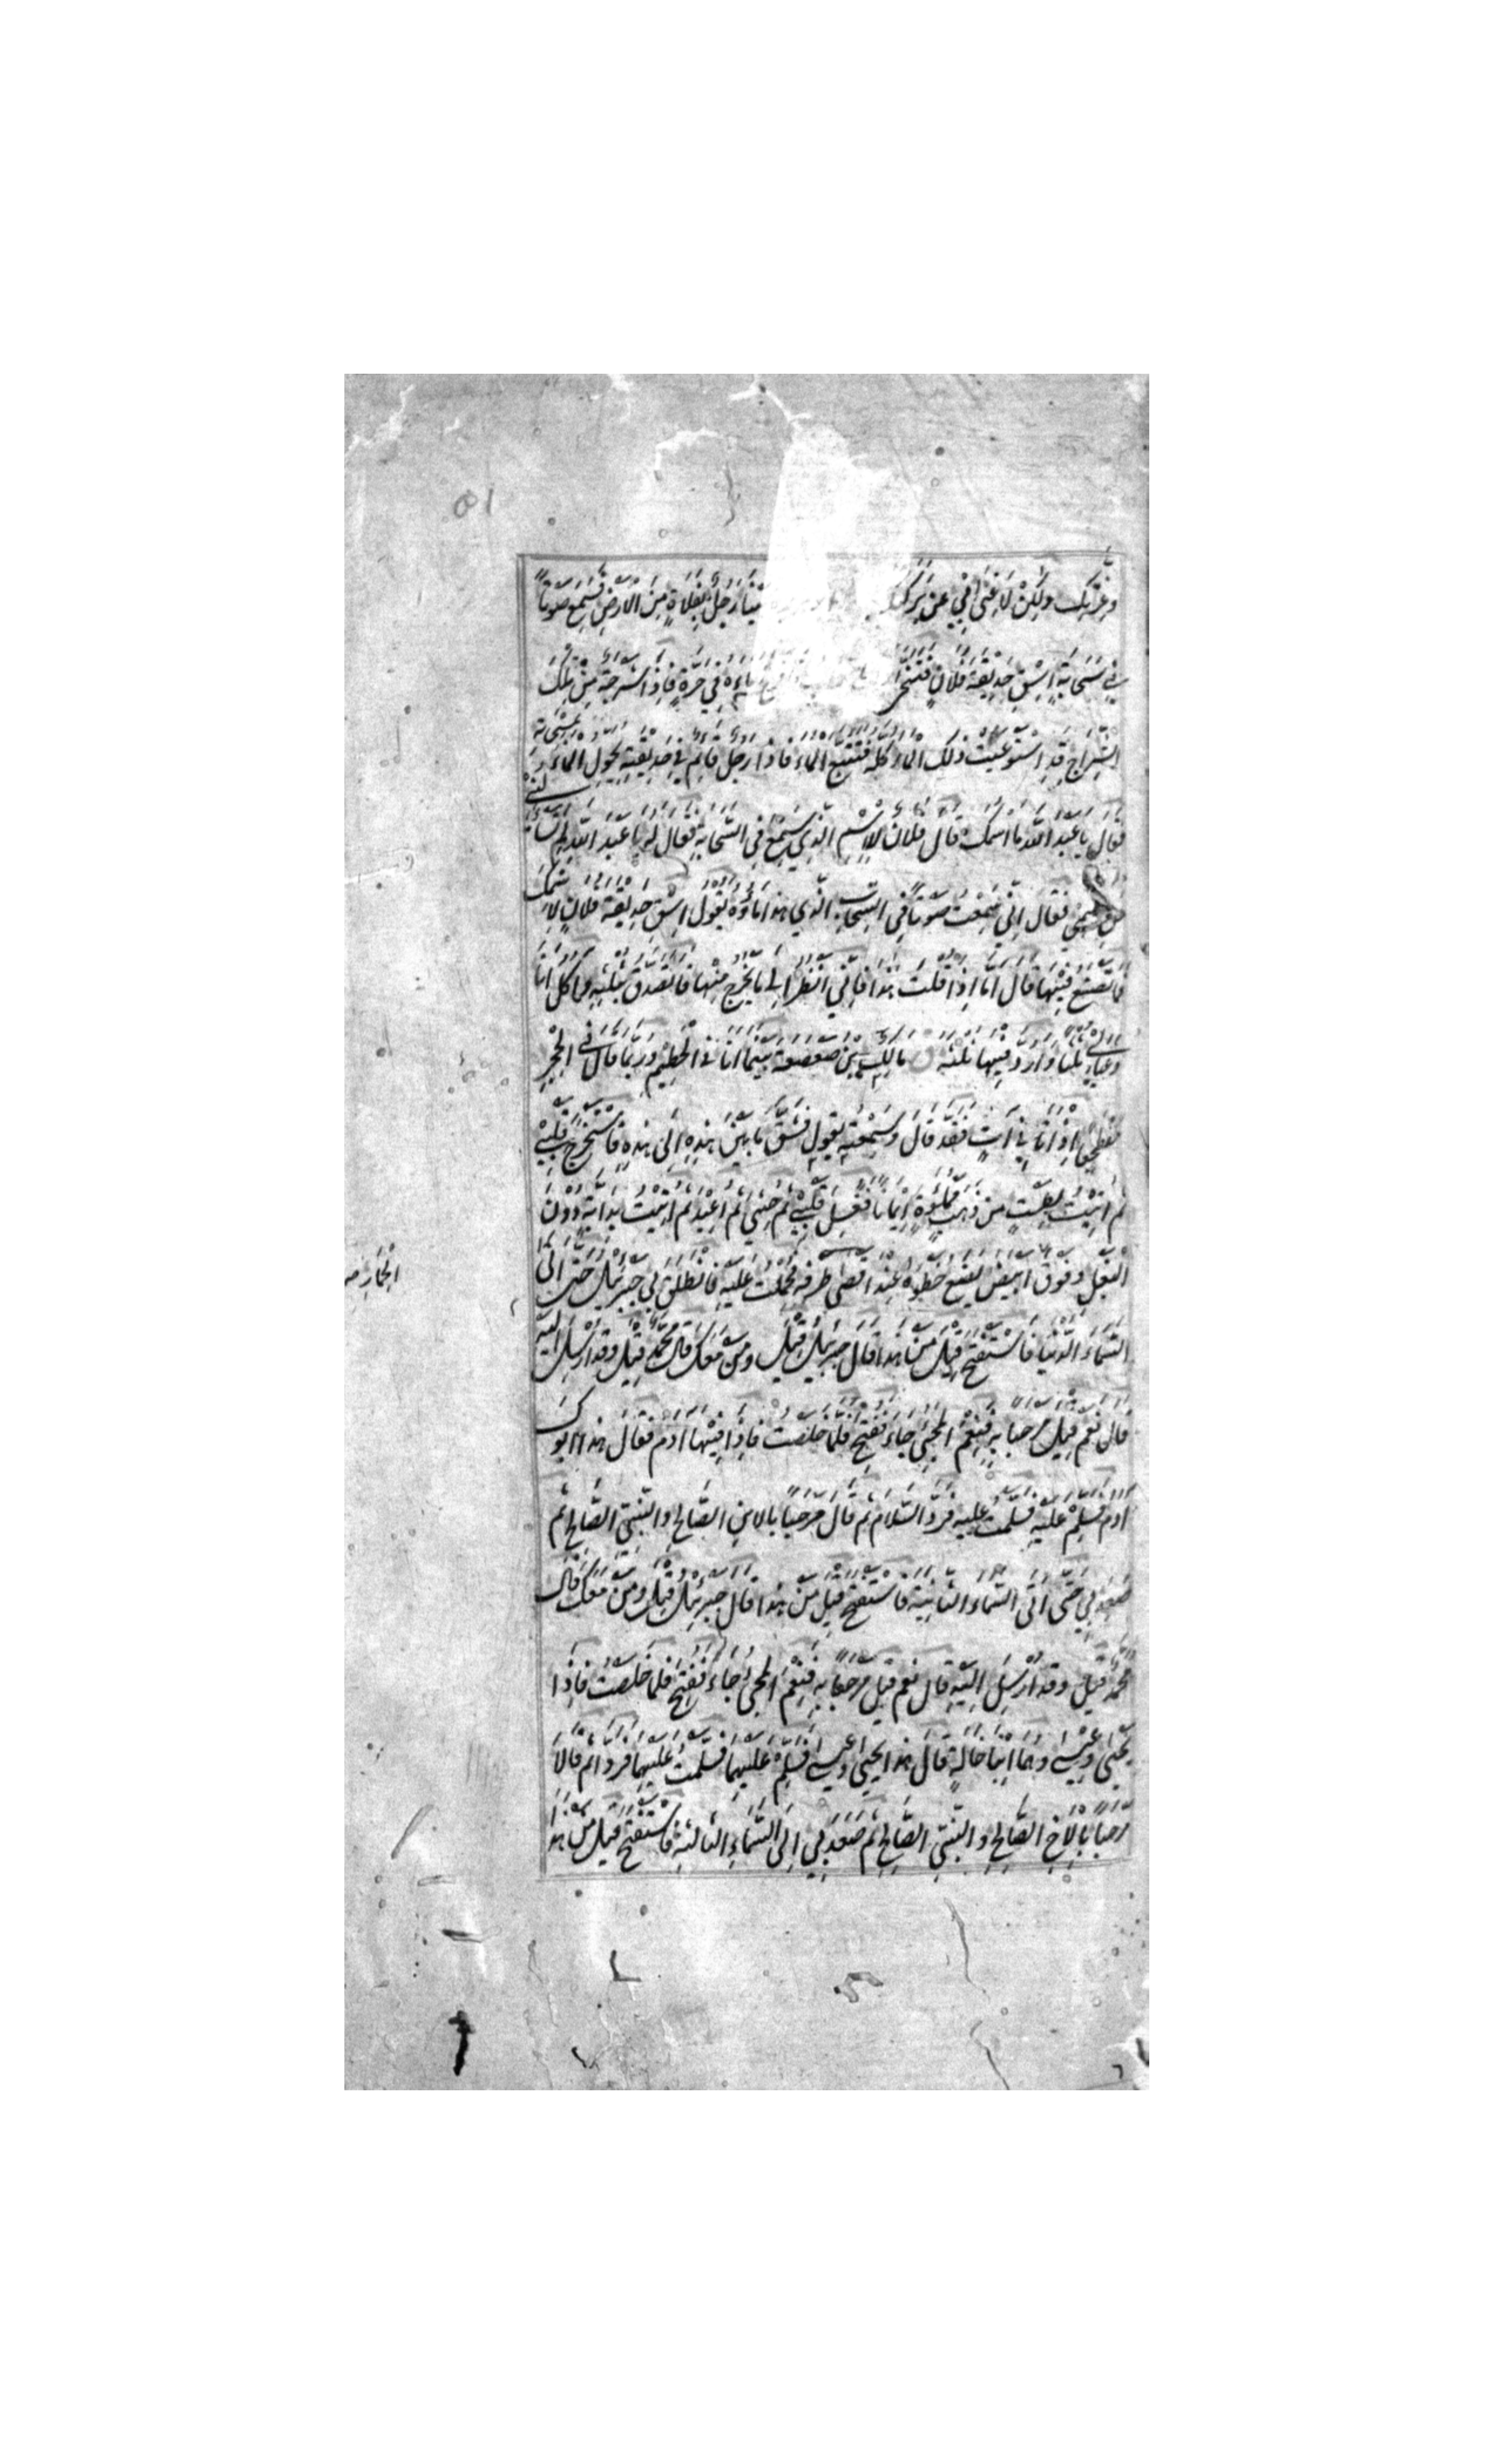 ٥١
وعزتك ولكن لا غنى بي عن بركتك بينا رجل بفلاة من الارض فسمع صوتا
في سحابة اسق حديقة فلان فتنحى ماءه في حرة فاذا شرجة من تلك
الشراج قد استوعبت ذلك الماء كله فتتبع الماء فاذا رجل قائم في حديقته يحول الماء بمسحاته
فقال يا عبد الله ما اسمك قال فلان للاسم الذي سمع في السحابة فقال له يا عبد الله لم تسألني
عن اسمي فقال اني سمعت صوتا في السحاب الذي هذا ماؤه يقول اسق حديقة فلان لاسمك
فما تصنع فيها قال اما اذا قلت هذا فاني انظر الى ما يخرج منها فاتصدق بثلثه وآكل انا
وعيالي ثلثا وارد فيها ثلثه مالك بن صعصعة بينما انا في الحطيم وربما قال في الحجر
مضطجعا اذ اتاني آت فقد قال وسمعته يقول فشق ما بين هذه الى هذه فاستخرج قلبي
ثم اتيت بطست من ذهب مملوءة ايمانا فغسل قلبي ثم حشي ثم اعيد ثم اتيت بدابة دون
البغل وفوق ابيض يضع خطوه عند اقصى طرفه فحملت عليه فانطلق بي جبرئيل حتى اتى
الحمار صح
السماء الدنيا فاستفتح قيل من هذا قال جبرئيل قيل ومن معك قال محمد قيل وقد ارسل اليه
قال نعم قيل مرحبا به فنعم المجيء جاء ففتح فلما خلصت فاذا فيها آدم فقال هذا ابوك
آدم فسلم عليه فسلمت عليه فرد السلام ثم قال مرحبا بالابن الصالح والنبي الصالح ثم
صعد بي حتى اتى السماء الثانية فاستفتح قيل من هذا قال جبرئيل قيل ومن معك قال
محمد قيل وقد ارسل اليه قال نعم قيل مرحبا به فنعم المجيء جاء ففتح فلما خلصت فاذا
يحيى وعيسى وهما ابنا خالة قال هذا يحيى وعيسى فسلم عليهما فسلمت عليهما فردا ثم قالا
مرحبا بالاخ الصالح والنبي الصالح ثم صعد بي الى السماء الثالثة فاستفتح قيل من هذا